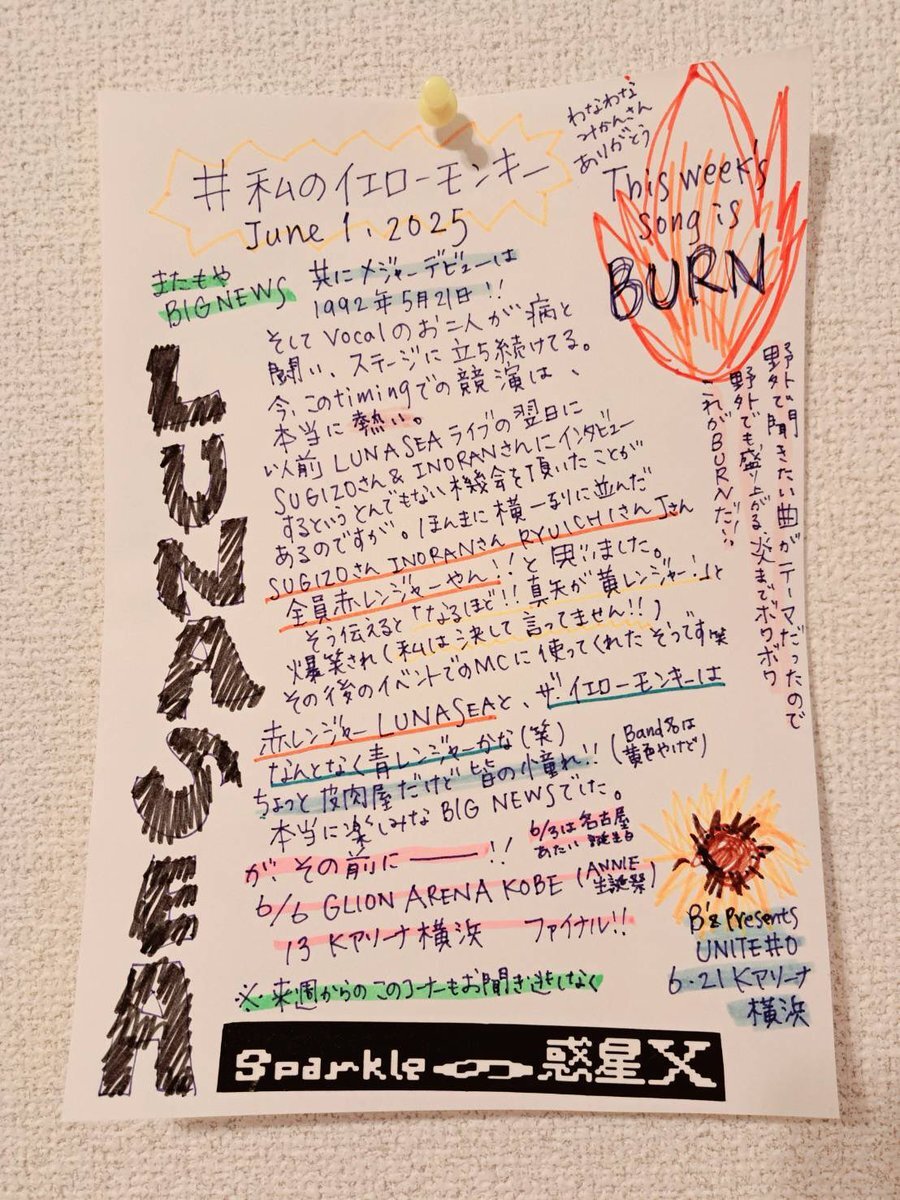 わなわな
みかんさん
ありがとう
#私のイエローモンキー
June 1, 2025
This week's
song is
BURN
またもや
BIG NEWS
共にメジャーデビューは
1992年5月21日!!
LUNA SEA
そしてVocalのお二人が病と
闘い、ステージに立ち続けてる。
今、このtimingでの競演は、
本当に熱い。
以前LUNASEAライブの翌日に
SUGIZOさん&INORANさんにインタビュー
するというとんでもない機会を頂いたことが
あるのですが。ほんまに横一列に並んだ
SUGIZOさん INORANさん RYUICHIさん Jさん
全員赤レンジャーやん!!と思いました。
そう伝えると「なるほど!!真矢が黄レンジャー!」と
爆笑され(私は決して言ってません!!)
その後のイベントでのMCに使ってくれたそうです笑
赤レンジャーLUNASEAと、ザ・イエローモンキーは
なんとなく青レンジャーかな(笑)
(Band名は
黄色やけど)
ちょっと皮肉屋だけど皆の憧れ!!
本当に楽しみなBIG NEWSでした。
が、その前に――!!
6/3は名古屋
あたい誕生日
6/6 GLION ARENA KOBE (ANNIE
生誕祭)
13 Kアリーナ横浜 ファイナル!!
※来週からのこのコーナーもお聞き逃しなく
野外で聞きたい曲がテーマだったので
野外でも盛り上がる、炎までボワボワ
これがBURNだ!!
B'z Presents
UNITE #0
6・21 Kアリーナ
横浜
Sparkleの惑星X